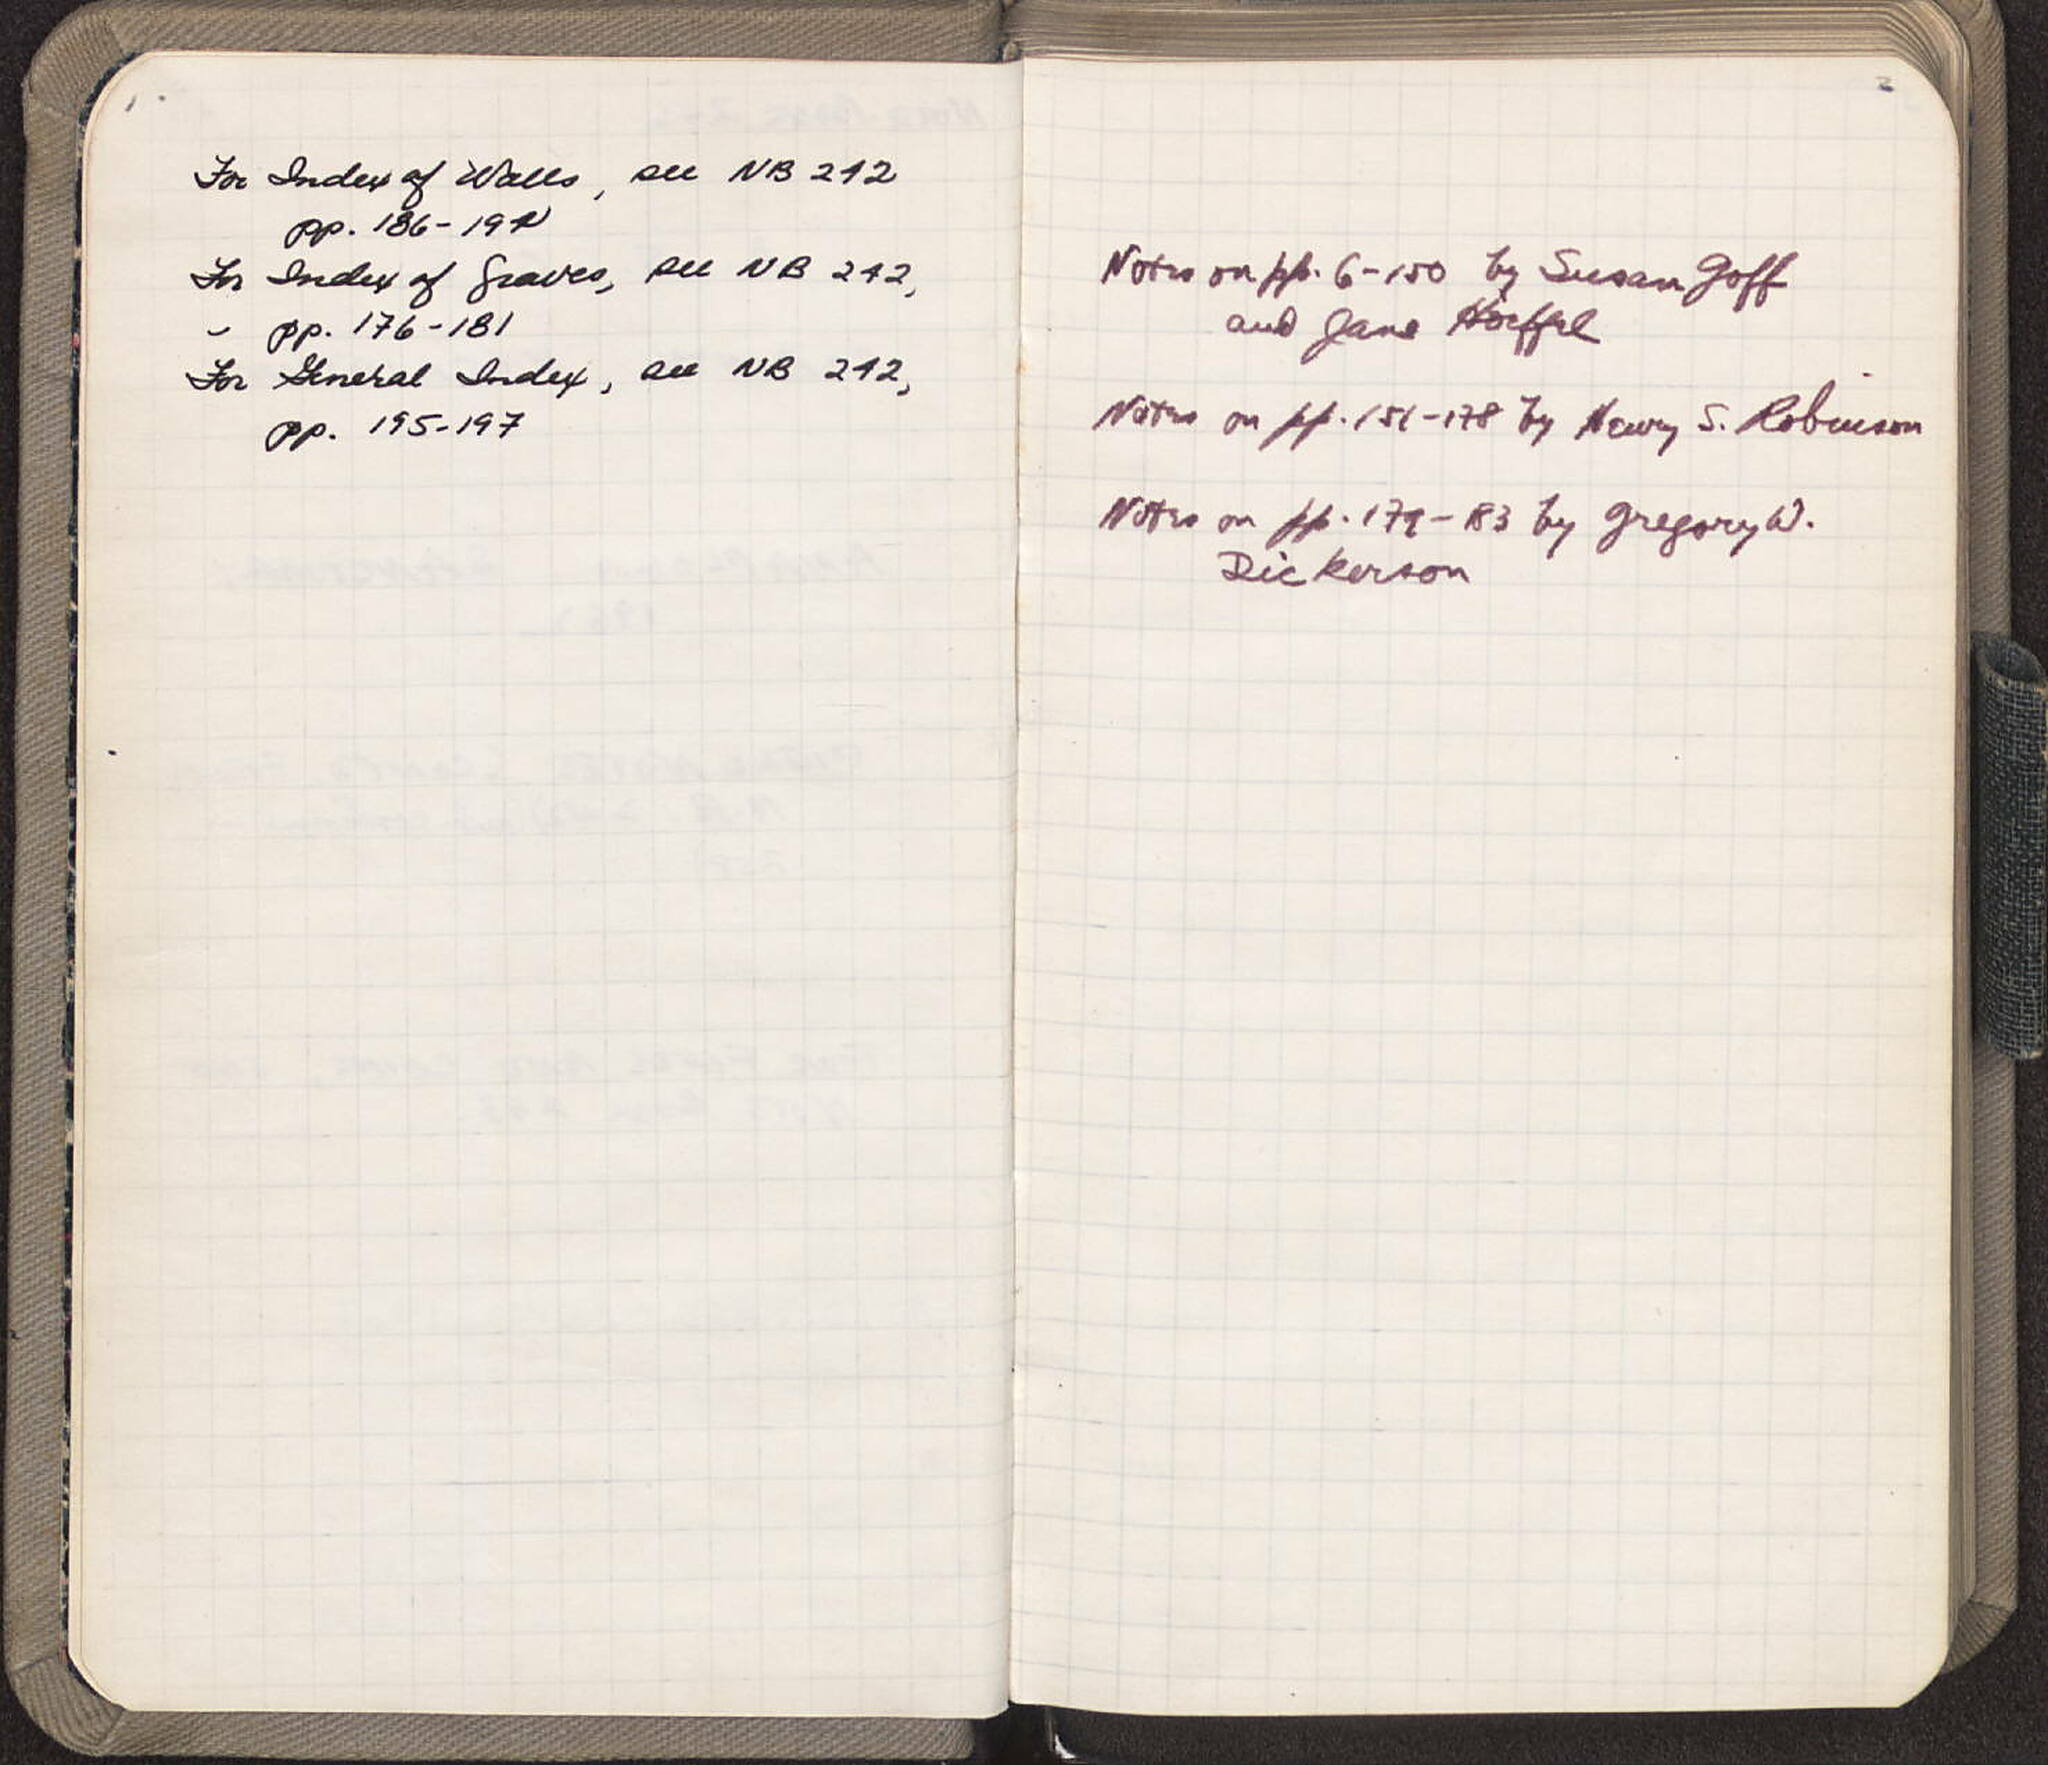 1
For Index of Walls, see NB 242
pp. 186-194
For Index of Graves, see NB 242,
pp. 176-181
For General Index, see NB 242,
pp. 195-197
2
Notes on pp. 6-150 by Susan Goff
and Jane Hoeffel
Notes on pp. 151-178 by Henry S. Robinson
Notes on pp. 179-83 by Gregory W.
Dickerson